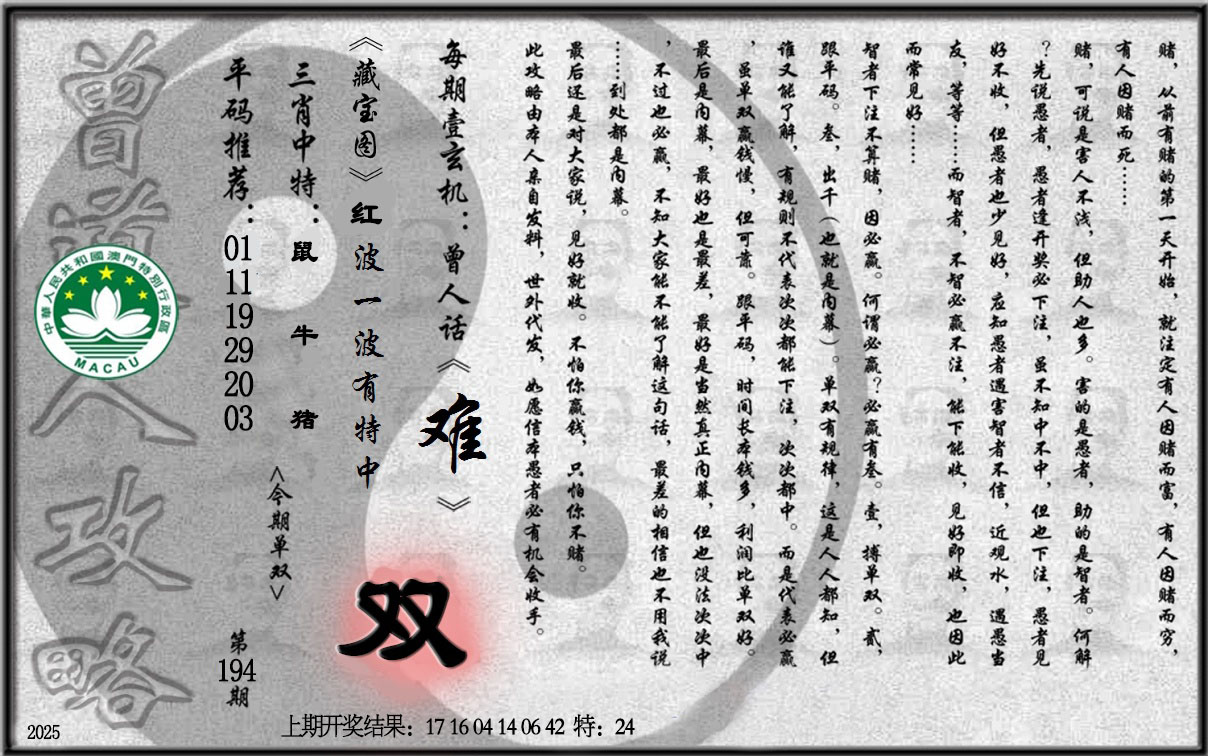 赌，从前有赌的第一天开始，就注定有人因赌而富，有人因赌而穷，
有人因赌而死……
赌，可说是害人不浅，但助人也多。害的是愚者，助的是智者。何解
？先说愚者，愚者逢开奖必下注，虽不知中不中，但也下注，愚者见
好不收，但愚者也少见好，应知愚者遇害智者不信，近观水，遇愚当
友，等等……而智者，不智必赢不注，能下能收，见好即收，也因此
而常见好……
智者下注不算赌，因必赢。何谓必赢？必赢有叁。壹，搏单双。贰，
跟平码。叁，出千（也就是内幕）。单双有规律，这是人人都知，但
谁又能了解，有规则不代表次次都能下注，次次都中。而是代表必赢
，虽单双赢钱慢，但可靠。跟平码，时间长本钱多，利润比单双好。
最后是内幕，最好也是最差，最好是当然真正内幕，但也没法次次中
，不过也必赢，不知大家能不能了解这句话，最差的相信也不用我说
……到处都是内幕。
最后还是对大家说，见好就收。不怕你赢钱，只怕你不赌。
此攻略由本人亲自发料，世外代发，如愿信本愚者必有机会收手。
每期壹玄机：曾人话《难》
《藏宝图》红波一波有特中
双
三肖中特：鼠牛猪
<今期单双>
平码推荐：01 11 19 29 20 03
第194期
曾道人攻略
中華人民共和國澳門特別行政區
MACAU
2025
上期开奖结果：17 16 04 14 06 42 特：24